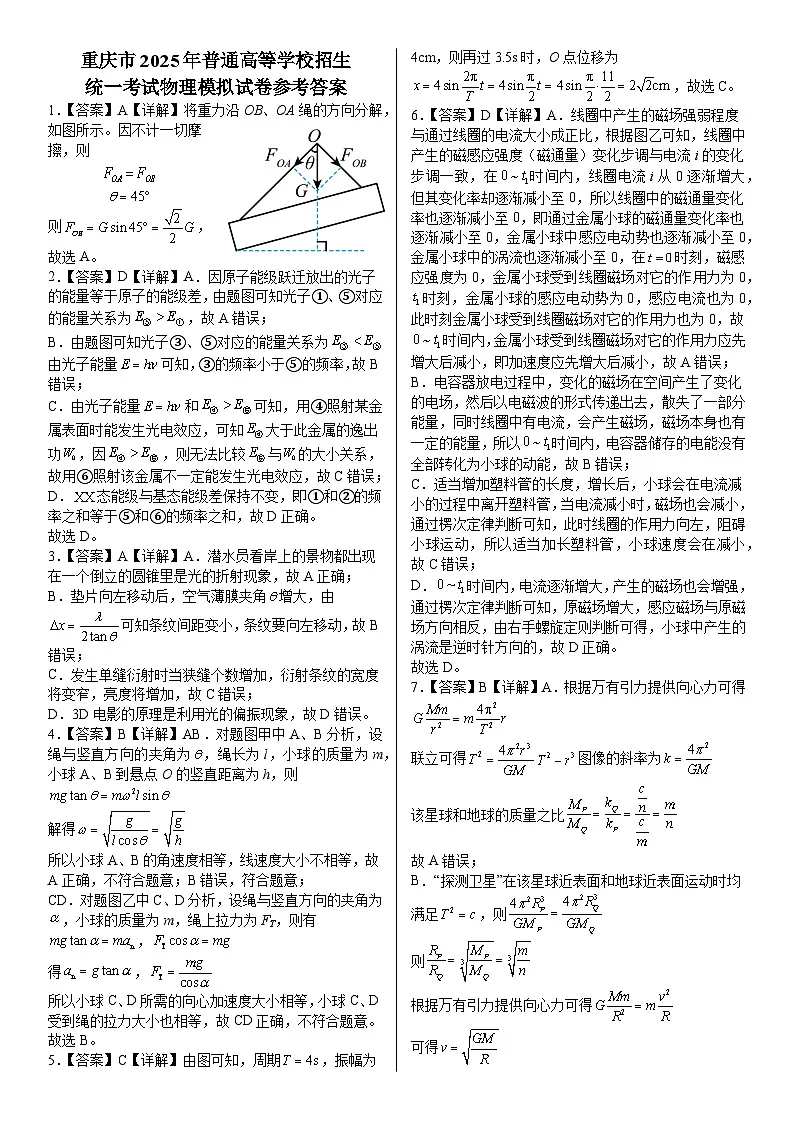 重庆市2025年普通高等学校招生
统一考试物理模拟试卷参考答案
1.【答案】A【详解】将重力沿OB、OA绳的方向分解,
如图所示。因不计一切摩
擦,则
F_OA = F_OB
θ = 45°
则F_OB = G sin 45° = √2/2 G,
故选A。
O
F_OA θ F_OB
G
2.【答案】D【详解】A.因原子能级跃迁放出的光子
的能量等于原子的能级差,由题图可知光子①、⑤对应
的能量关系为E⑤ > E①,故A错误;
B.由题图可知光子③、⑤对应的能量关系为E③ < E⑤
由光子能量E = hν可知,③的频率小于⑤的频率,故B
错误;
C.由光子能量E = hν和E④ > E⑥可知,用④照射某金
属表面时能发生光电效应,可知E④大于此金属的逸出
功W₀,因E④ > E⑥,则无法比较E⑥与W₀的大小关系,
故用⑥照射该金属不一定能发生光电效应,故C错误;
D.XX态能级与基态能级差保持不变,即①和②的频
率之和等于⑤和⑥的频率之和,故D正确。
故选D。
3.【答案】A【详解】A.潜水员看岸上的景物都出现
在一个倒立的圆锥里是光的折射现象,故A正确;
B.垫片向左移动后,空气薄膜夹角θ增大,由
Δx = λ/(2tanθ)可知条纹间距变小,条纹要向左移动,故B
错误;
C.发生单缝衍射时当狭缝个数增加,衍射条纹的宽度
将变窄,亮度将增加,故C错误;
D.3D电影的原理是利用光的偏振现象,故D错误。
4.【答案】B【详解】AB.对题图甲中A、B分析,设
绳与竖直方向的夹角为θ,绳长为l,小球的质量为m,
小球A、B到悬点O的竖直距离为h,则
mg tanθ = mω²l sinθ
解得ω = √(g/(l cosθ)) = √(g/h)
所以小球A、B的角速度相等,线速度大小不相等,故
A正确,不符合题意;B错误,符合题意;
CD.对题图乙中C、D分析,设绳与竖直方向的夹角为
α,小球的质量为m,绳上拉力为F_T,则有
mg tanα = ma_n,F_T cosα = mg
得a_n = g tanα,F_T = mg/cosα
所以小球C、D所需的向心加速度大小相等,小球C、D
受到绳的拉力大小也相等,故CD正确,不符合题意。
故选B。
5.【答案】C【详解】由图可知,周期T = 4s,振幅为
4cm,则再过3.5s时,O点位移为
x = 4sin (2π/T)t = 4sin (π/2)t = 4sin (π/2)·(11/2) = 2√2cm,故选C。
6.【答案】D【详解】A.线圈中产生的磁场强弱程度
与通过线圈的电流大小成正比,根据图乙可知,线圈中
产生的磁感应强度(磁通量)变化步调与电流i的变化
步调一致,在0~t₁时间内,线圈电流i从0逐渐增大,
但其变化率却逐渐减小至0,所以线圈中的磁通量变化
率也逐渐减小至0,即通过金属小球的磁通量变化率也
逐渐减小至0,金属小球中感应电动势也逐渐减小至0,
金属小球中的涡流也逐渐减小至0,在t = 0时刻,磁感
应强度为0,金属小球受到线圈磁场对它的作用力为0,
t₁时刻,金属小球的感应电动势为0,感应电流也为0,
此时刻金属小球受到线圈磁场对它的作用力也为0,故
0~t₁时间内,金属小球受到线圈磁场对它的作用力应先
增大后减小,即加速度应先增大后减小,故A错误;
B.电容器放电过程中,变化的磁场在空间产生了变化
的电场,然后以电磁波的形式传递出去,散失了一部分
能量,同时线圈中有电流,会产生磁场,磁场本身也有
一定的能量,所以0~t₁时间内,电容器储存的电能没有
全部转化为小球的动能,故B错误;
C.适当增加塑料管的长度,增长后,小球会在电流减
小的过程中离开塑料管,当电流减小时,磁场也会减小,
通过楞次定律判断可知,此时线圈的作用力向左,阻碍
小球运动,所以适当加长塑料管,小球速度会在减小,
故C错误;
D.0~t₁时间内,电流逐渐增大,产生的磁场也会增强,
通过楞次定律判断可知,原磁场增大,感应磁场与原磁
场方向相反,由右手螺旋定则判断可得,小球中产生的
涡流是逆时针方向的,故D正确。
故选D。
7.【答案】B【详解】A.根据万有引力提供向心力可得
G Mm/r² = m (4π²/T²) r
联立可得T² = 4π²r³/GM T² − r³图像的斜率为k = 4π²/GM
该星球和地球的质量之比M_P/M_Q = k_Q/k_P = (c/n)/(c/m) = m/n
故A错误;
B.“探测卫星”在该星球近表面和地球近表面运动时均
满足T² = c,则4π²R_P³/GM_P = 4π²R_Q³/GM_Q
则R_P/R_Q = ∛(M_P/M_Q) = ∛(m/n)
根据万有引力提供向心力可得G Mm/R² = m v²/R
可得v = √(GM/R)